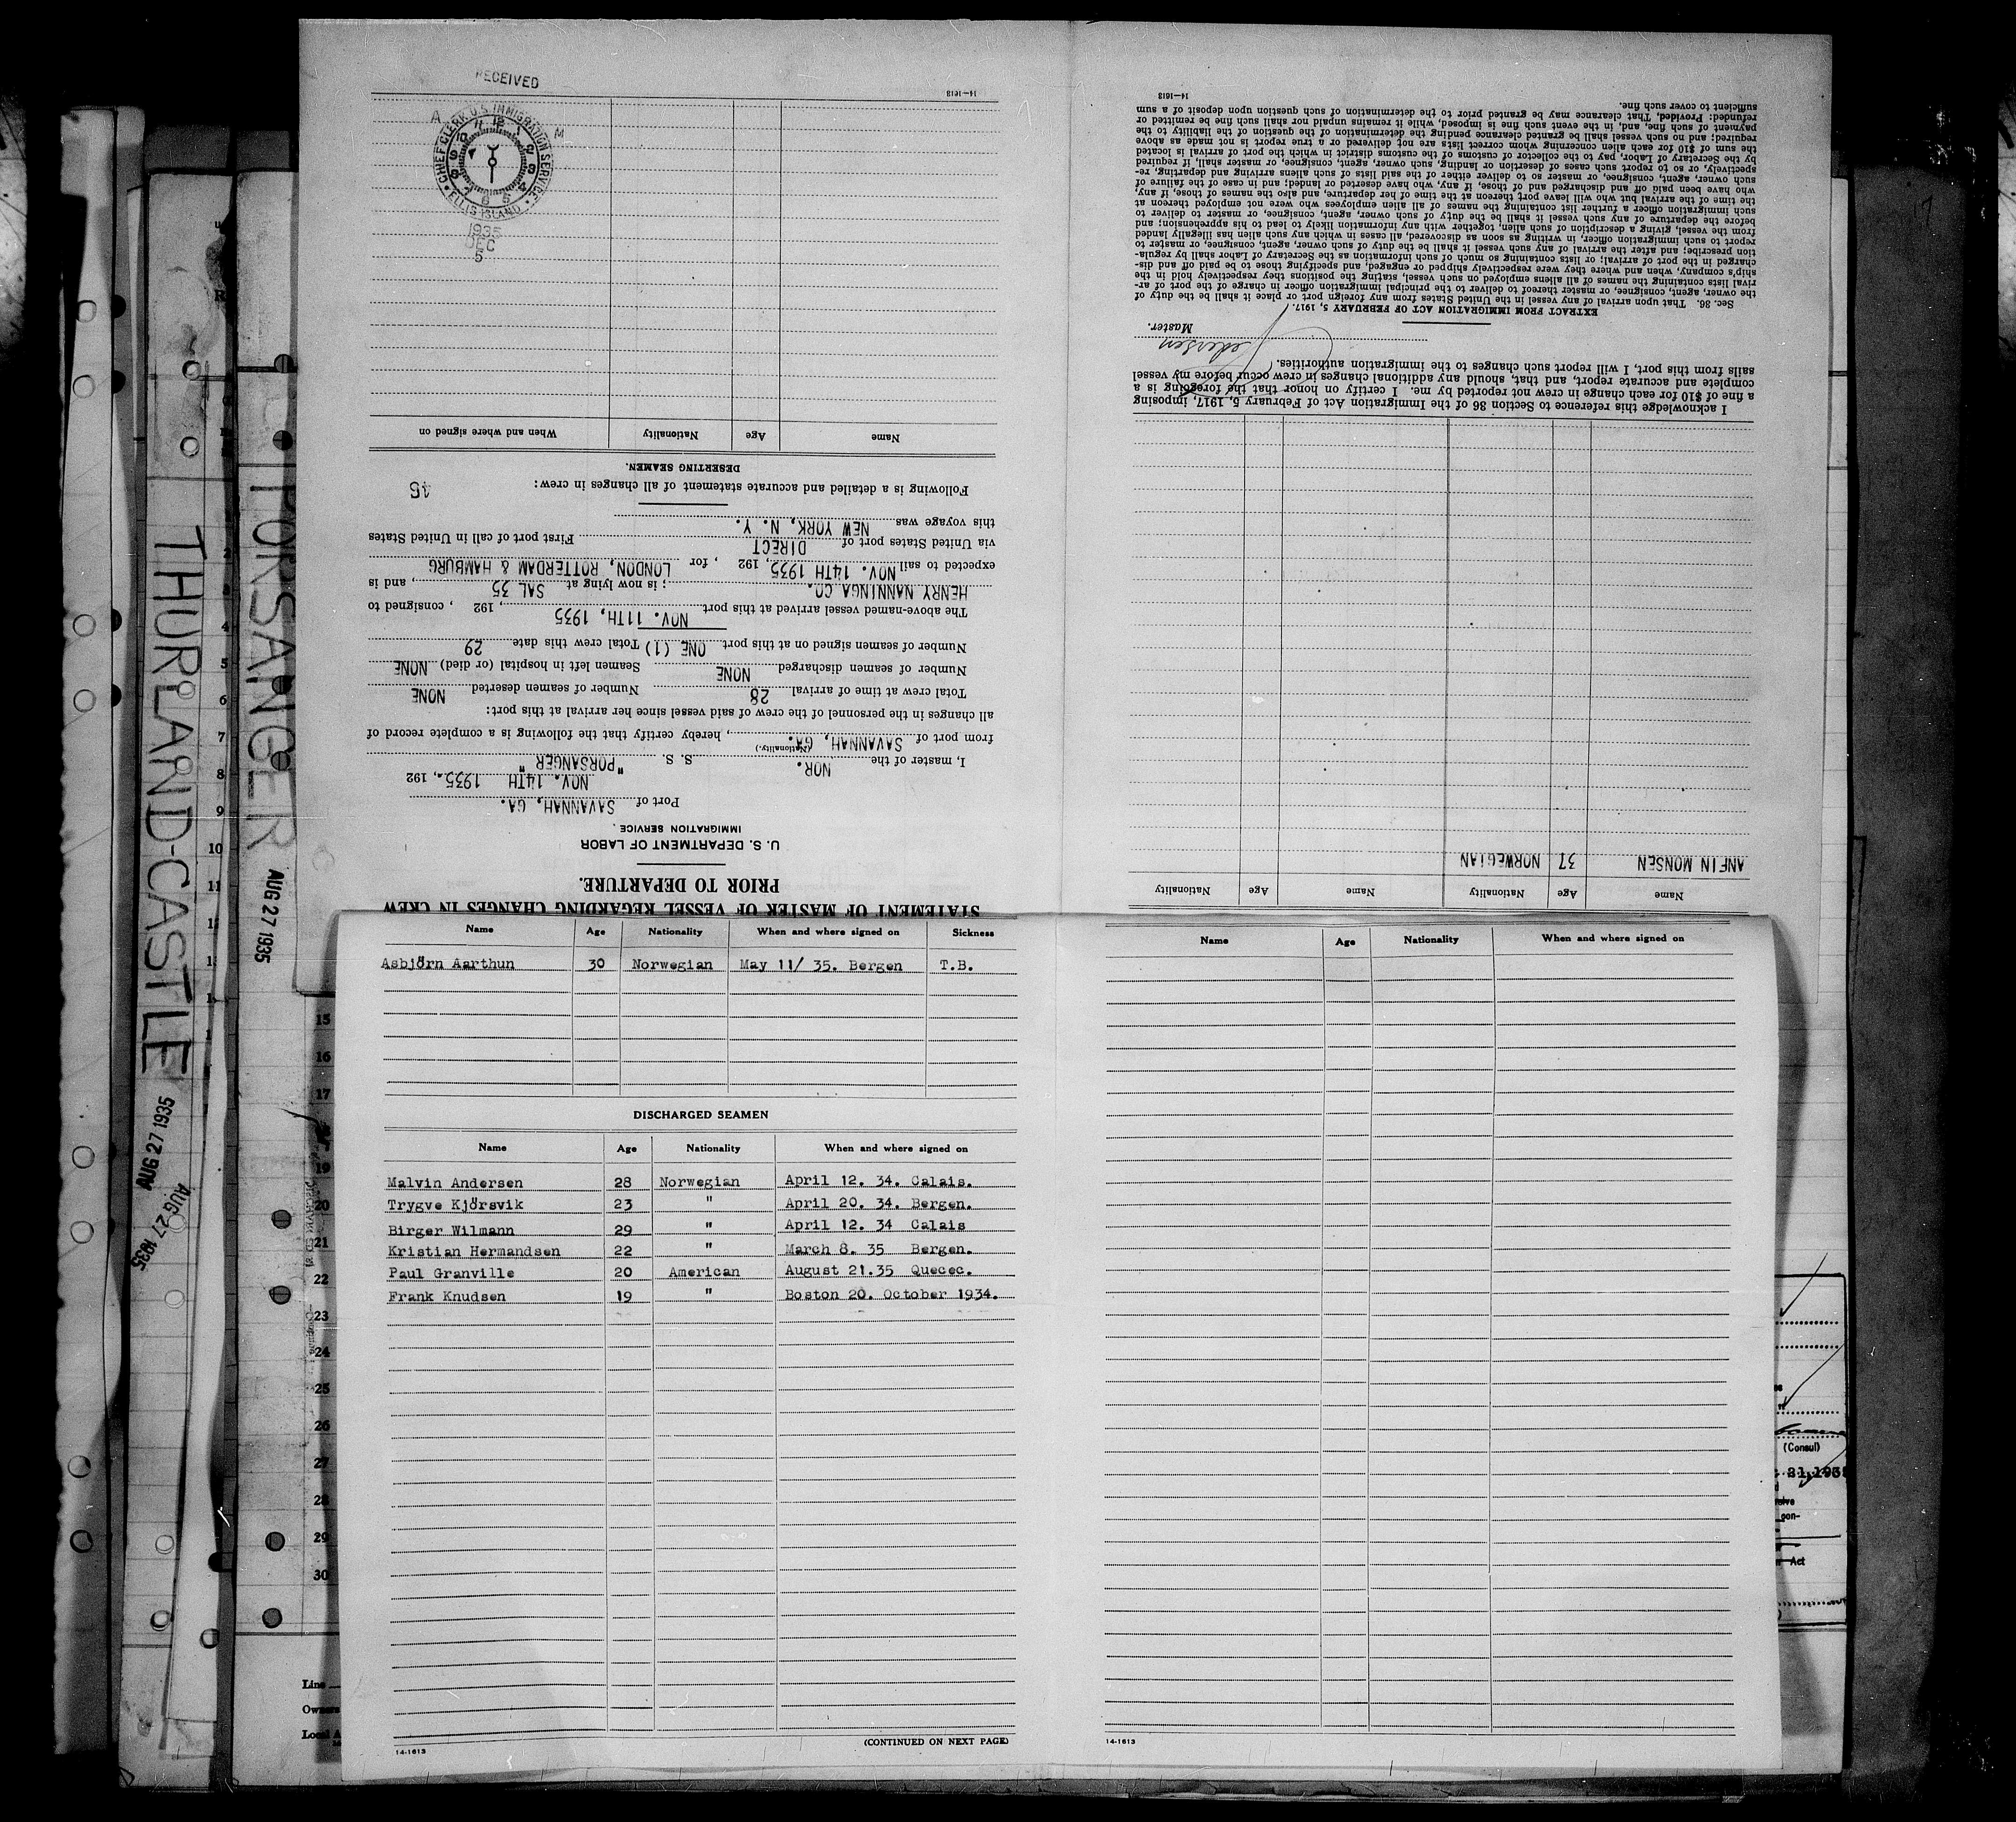 RECEIVED
CHIEF CLERK U.S. IMMIGRATION SERVICE
ELLIS ISLAND
A M
1935
DEC
5
THURLAND-CASTLE
AUG 27 1935
AUG 27 1935
PORSANGER
AUG 27 1935
STATEMENT OF MASTER OF VESSEL REGARDING CHANGES IN CREW
PRIOR TO DEPARTURE.
U. S. DEPARTMENT OF LABOR
IMMIGRATION SERVICE
Port of SAVANNAH, GA.
NOV. 14TH 1935., 192
I, master of the NOR. S. S. "PORSANGER"
(Nationality.)
from port of SAVANNAH, GA., hereby certify that the following is a complete record of
all changes in the personnel of the crew of said vessel since her arrival at this port:
Total crew at time of arrival 28 Number of seamen deserted NONE
Number of seamen discharged NONE Seamen left in hospital (or died) NONE
Number of seamen signed on at this port ONE (1) Total crew this date 29
The above-named vessel arrived at this port NOV. 11TH, 1935, 192 , consigned to
HENRY NANNINGA CO.; is now lying at SAL 35, and is
expected to sail NOV. 14TH 1935, 192 , for LONDON, ROTTERDAM & HAMBURG
via United States port of DIRECT First port of call in United States
this voyage was NEW YORK, N. Y.
Following is a detailed and accurate statement of all changes in crew:
DESERTING SEAMEN.
Name Age Nationality When and where signed on
14—1613
Name Age Nationality Name Age Nationality
ANFIN MONSEN 37 NORWEGIAN
I acknowledge this reference to Section 36 of the Immigration Act of February 5, 1917, imposing
a fine of $10 for each change in crew not reported by me. I certify on honor that the foregoing is a
complete and accurate report, and that, should any additional changes in crew occur before my vessel
sails from this port, I will report such changes to the immigration authorities.
Pedersen
Master.
EXTRACT FROM IMMIGRATION ACT OF FEBRUARY 5, 1917.
Sec. 36. That upon arrival of any vessel in the United States from any foreign port or place it shall be the duty of
the owner, agent, consignee, or master thereof to deliver to the principal immigration officer in charge of the port of ar-
rival lists containing the names of all aliens employed on such vessel, stating the positions they respectively hold in the
ship's company, when and where they were respectively shipped or engaged, and specifying those to be paid off and dis-
charged in the port of arrival; or lists containing so much of such information as the Secretary of Labor shall by regula-
tion prescribe; and after the arrival of any such vessel it shall be the duty of such owner, agent, consignee, or master to
report to such immigration officer, in writing as soon as discovered, all cases in which any such alien has illegally landed
from the vessel, giving a description of such alien, together with any information likely to lead to his apprehension; and
before the departure of any such vessel it shall be the duty of such owner, agent, consignee, or master to deliver to
such immigration officer a further list containing the names of all alien employees who were not employed thereon at
the time of the arrival but who will leave port thereon at the time of her departure, and also the names of those, if any,
who have been paid off and discharged and of those, if any, who have deserted or landed; and in case of the failure of
such owner, agent, consignee, or master so to deliver either of the said lists of such aliens arriving and departing, re-
spectively, or so to report such cases of desertion or landing, such owner, agent, consignee, or master shall, if required
by the Secretary of Labor, pay to the collector of customs of the customs district in which the port of arrival is located
the sum of $10 for each alien concerning whom correct lists are not delivered or a true report is not made as above
required; and no such vessel shall be granted clearance pending the determination of the question of the liability to the
payment of such fine, and, in the event such fine is imposed, while it remains unpaid nor shall such fine be remitted or
refunded: Provided, That clearance may be granted prior to the determination of such question upon deposit of a sum
sufficient to cover such fine.
14—1613
Name Age Nationality When and where signed on Sickness
Asbjörn Aarthun 30 Norwegian May 11/ 35. Bergen T.B.
DISCHARGED SEAMEN
Name Age Nationality When and where signed on
Malvin Andersen 28 Norwegian April 12. 34. Calais.
Trygve Kjörsvik 23 " April 20. 34. Bergen.
Birger Wilmann 29 " April 12. 34 Calais
Kristian Hermandsen 22 " March 8. 35 Bergen.
Paul Granville 20 American August 21.35 Quecec.
Frank Knudsen 19 " Boston 20. October 1934.
14-1613
(CONTINUED ON NEXT PAGE)
Name Age Nationality When and where signed on
14-1613
2
3
4
5
6
7
8
9
10
11
15
16
17
19
20
21
22
23
24
25
26
27
28
29
30
Line
Owners
Local A
(Consul)
21,193
con-
Act